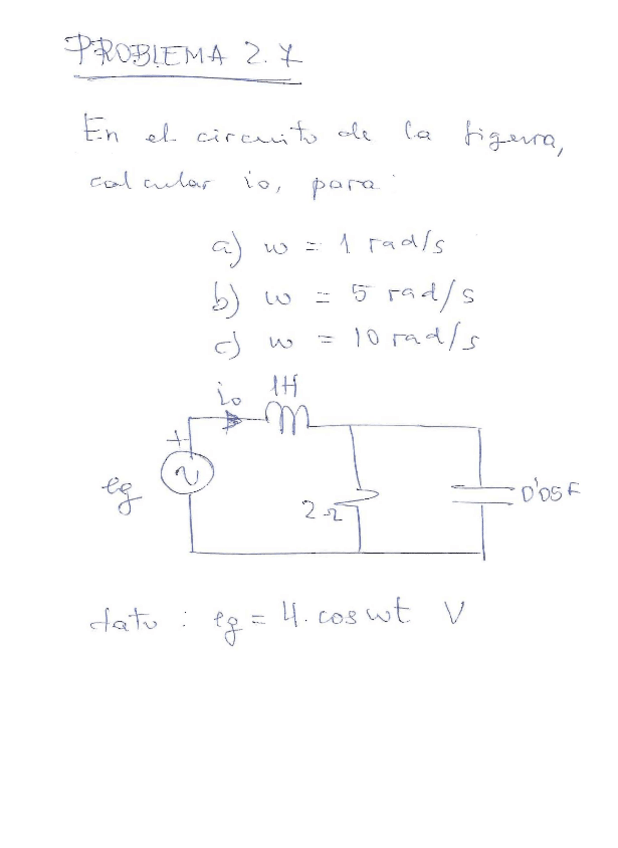 PROBLEMA 2.7
En el circuito de la figura,
calcular io, para:
a) w = 1 rad/s
b) w = 5 rad/s
c) w = 10 rad/s
io 1H
+
eg
2Ω
0'05F
dato : eg = 4. cos wt V